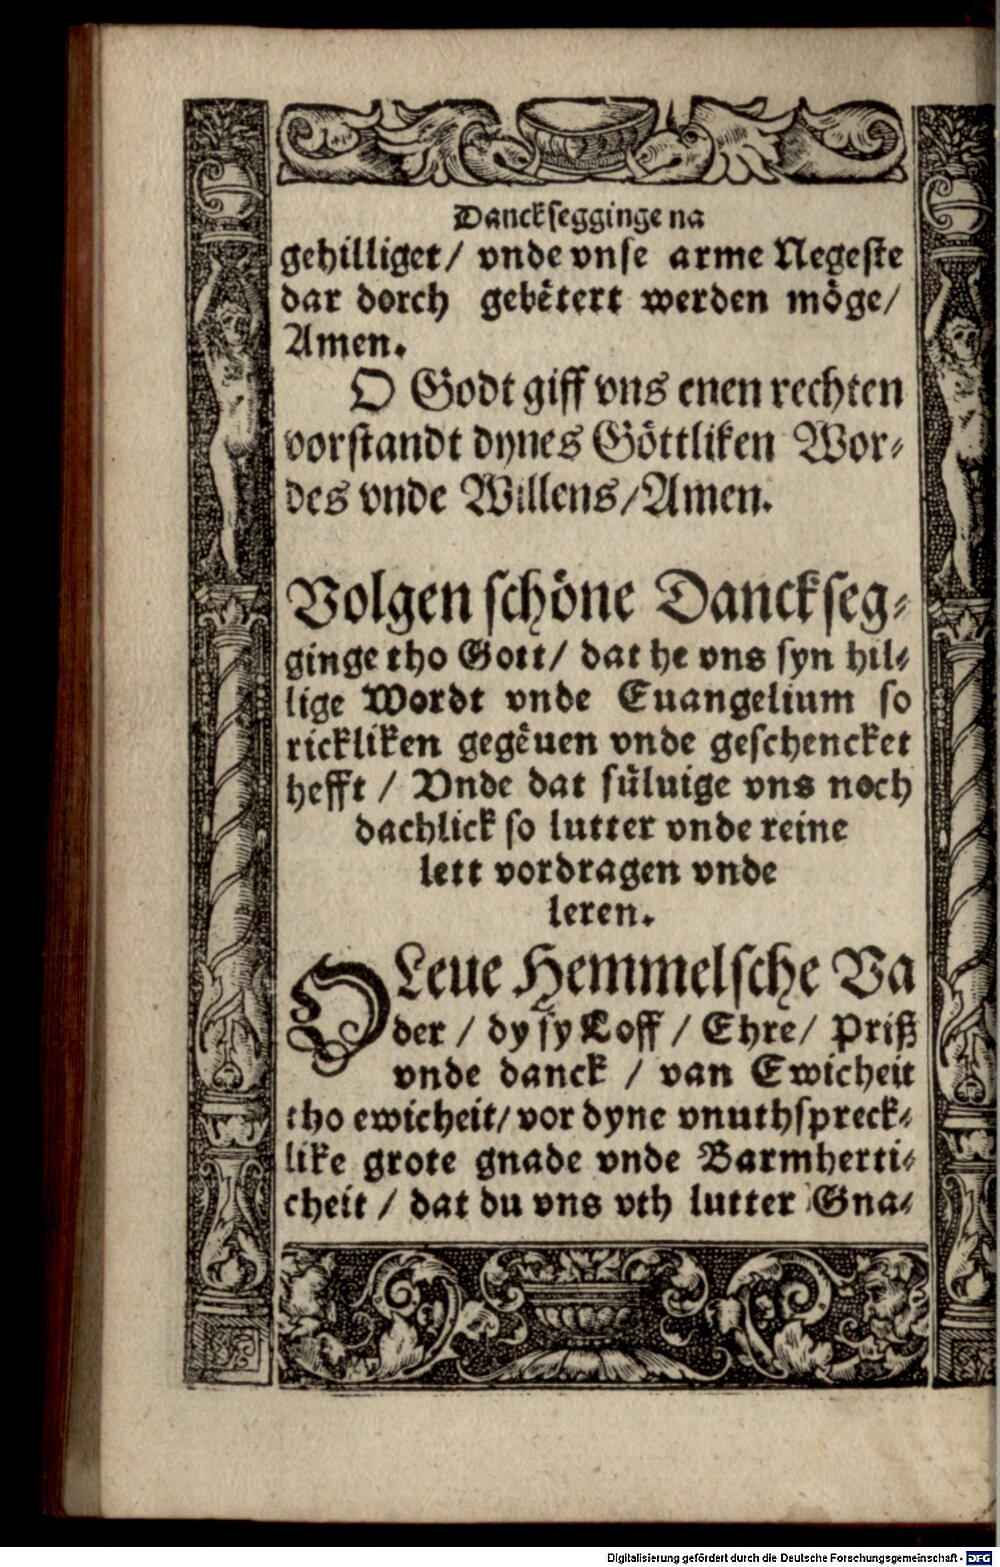 Danckſegginge na
gehilliget/ vnde vnſe arme Negeſte
dar dorch gebêtert werden möge/
Amen.
O Godt giff vns enen rechten
vorſtandt dynes Göttliken Wor⸗
des vnde Willens/Amen.
Volgen ſchöne Danckſeg⸗
ginge tho Gott/ dat he vns ſyn hil⸗
lige Wordt vnde Euangelium ſo
rickliken gegêuen vnde geſchencket
hefft / Vnde dat ſüluige vns noch
dachlick ſo lutter vnde reine
lett vordragen vnde
leren.
O Leue Hemmelſche Va
der / dy ſy Loff / Ehre/ Priß
vnde danck / van Ewicheit
tho ewicheit/ vor dyne vnuthſpreck⸗
like grote gnade vnde Barmherti⸗
cheit / dat du vns vth lutter Gna⸗
Digitalisierung gefördert durch die Deutsche Forschungsgemeinschaft - DFG